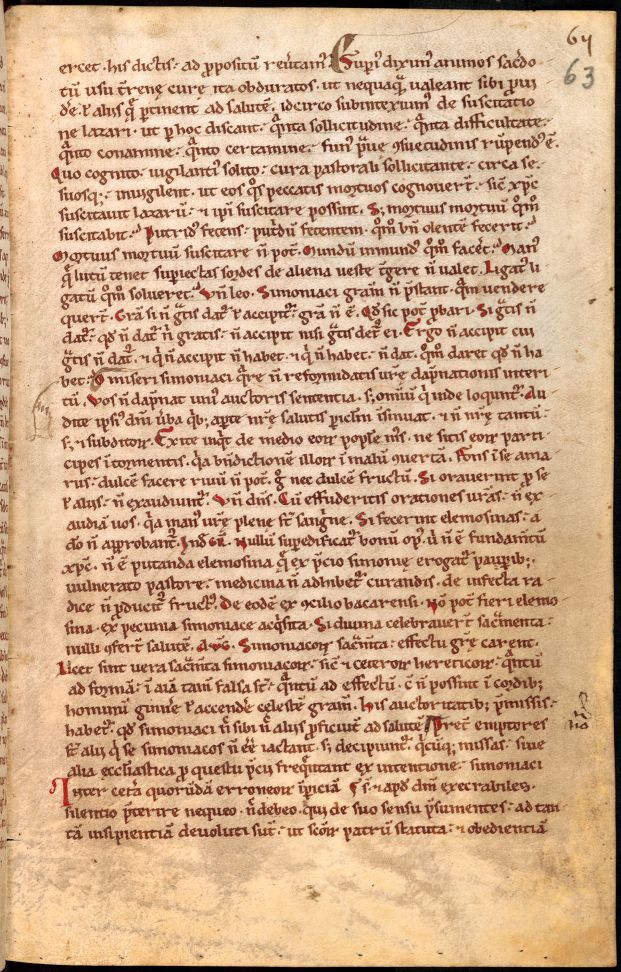 64
63
ercet. his dictis. ad ꝓpositū reūtam᷒. Supi᷒ dixim᷒ animos sac̄do
tū usu t̄rene cure ita obduratos. ut nequaq̄ ualeant sibi ꝓui
de. ł aliis q̄ ꝑtinent ad salutē. idcirco subintexim᷒ de suscitatio
ne lazari. ut ꝑ hoc discant. q̄nta sollicitudine. q̄nta difficultate.
q̄nto conamine. q̄nto certamine. fun᷒ praue ꝯsuetudinis rūpendū ē.
Quo cognito. uigilanti᷒ solito. cura pastorali sollicitante. circa se.
suosq; inuigilent. ut eos q̄s peccatis mortuos cognouert̄. sic̄ xp̄c
suscitauit lazarū. ⁊ ip̄i suscitare possint. S; mortuus mortuū q̄m̄
suscitabit. Putrid᷒ fetens. putͥdū fetentem. q̄m̄ bn̄ olentē fecerit.
Mortuus mortuū suscitare n̄ pot̄. Mundū inmund᷒ q̄m̄ facet̄. Man᷒
q̄ lutū tenet suꝑiectas sordes de aliena ueste t̄gere n̄ ualet. Ligat᷒ li
gatū q̄m̄ solueret. Vn̄ leo. Simoniaci gratiā n̄ p̄stant. q̄m uendere
quert̄. Grā si n̄ gͣtis dat᷒ ł accipit᷒ grā n̄ ē. Qd̄ sic pot̄ ꝓbari. Si gͣtis n̄
dat᷒. qd̄ n̄ dat᷒ n̄ gratis. n̄ accipit nisi gͣtis det᷒ ei. Ergo n̄ accipit cui
gͣtis n̄ dat᷒. ⁊ q̄ n̄ accipit n̄ habet. ⁊ q̄ n̄ habet. n̄ dat. q̄m daret qd̄ n̄ ha
bet. O miseri simoniaci q̄re n̄ reformidatis ur̄e dāpnationis interi
tū. Vos n̄ dāpnat uni᷒ auctoris sententia. s; omiū q̄ inde loqunt᷒. Au
dite ip̄si᷒ dn̄i ūba q̄b; aꝑte nr̄e salutis ꝑiclm̄ isinuat. ⁊ n̄ nr̄e tantū.
s; ⁊ subditoꝝ. Exite inqͥt de medio eoꝝ popule m̄s. ne sitis eoꝝ parti
cipes ī tormentis. q̄a bn̄dictionē illoꝝ ī malū ꝯuertā. Fons ī se ama
rus. dulcē facere riuū n̄ pot̄. g̊ nec dulcē fructū. Si orauerint ꝓ se
ł aliis. n̄ exaudiunt᷒. Vn̄ dn̄s. Cū effuderitis orationes ur̄as. n̄ ex
audiā uos. q̄a man᷒ ur̄e plene st̄ sangͥne. Si fecerint elemosinas. a
dō n̄ approbant᷒. Nullū suꝑedificat᷒ bonū op᷒. ū n̄ ē fundam̄tū
xp̄c. n̄ ē putanda elemosina q̄ ex p̄cio simonie erogat᷒ pauꝑib;.
uulnerato pastore. medicina n̄ adhibet᷒ curandis. de infecta ra
dice n̄ ꝓducit᷒ fruct᷒. De eodē ex ꝯcilio bacarensi. Nō pot̄ fieri elemo
sina. ex pecunia simoniace acq̄sita. Si diuina celebrauert̄ sac̄m̄ta.
nulli ꝯfert̄ salutē. Avg̅. Simoniacoꝝ sac̄m̄ta. effectu gr̄e carent.
Licet sint uera sac̄m̄ta simoniacoꝝ. sic̄ ⁊ ceteroꝝ hereticoꝝ. q̄ntū
ad formā. ī aīa tam̄ falsa st̄. q̄ntū ad effectū. c̄ n̄ possint ī cordib;
hominū giḡnre ł accende celestē gratiā. His auctoritatib; p̄missis.
habet᷒. qd̄ simoniaci n̄ sibi n̄ aliis ꝓficiunt ad salutē. Pret̄ emptores
st̄ alii q̄ se simoniacos n̄ eē iactant. s; decipiunt᷒. q̄cūq; missas. siue
alia ecclīastica ꝓ questu p̄cii freq̄ntant ex intentione. simoniaci
Inter cet̄a quorūdā erroneoꝝ īpiciā. s̄t ⁊ apd̄ dm̄ execrabiles.
silentio p̄terire nequeo. n̄ debeo. qui de suo sensu p̄sumentes. ad tan
tā insipientiā deuoluti sūt. ut sc̄oꝝ patrū statuta. ⁊ obedientiā